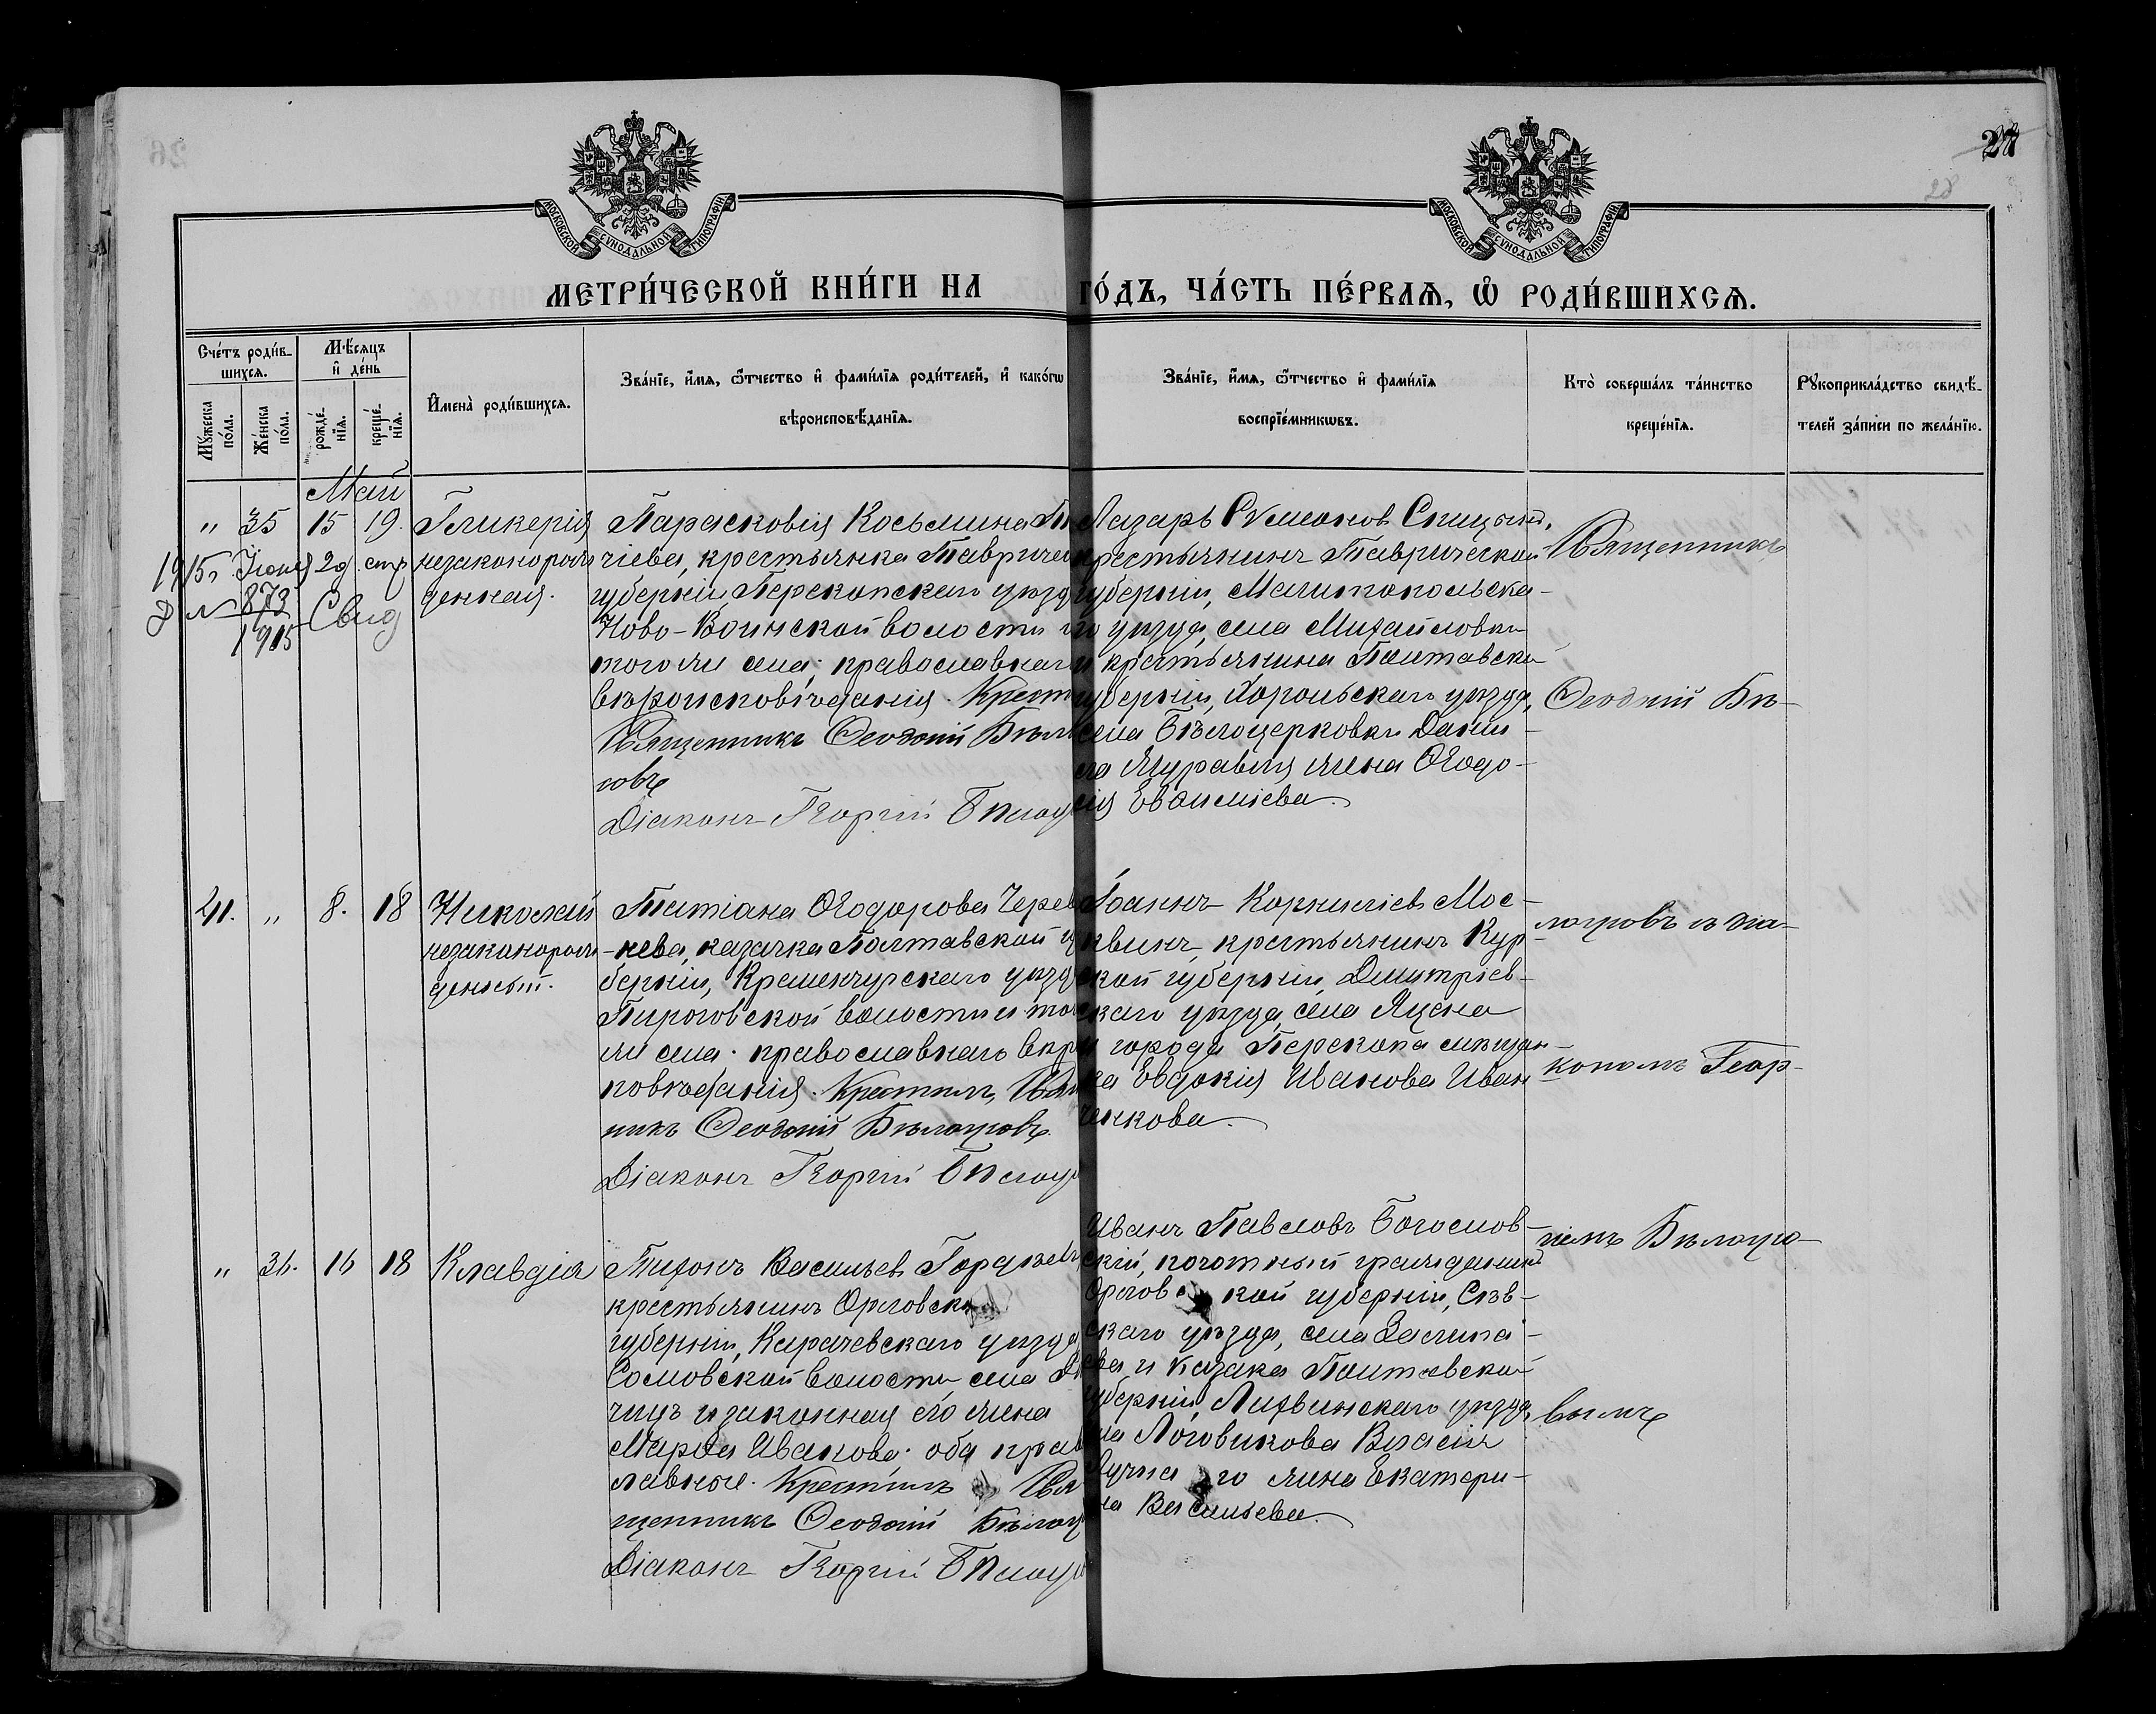 27
28
МОСКОВСКОЙ СѴНОДАЛЬНОЙ ТИПОГРАФІИ
МОСКОВСКОЙ СѴНОДАЛЬНОЙ ТИПОГРАФІИ
МЕТРИ́ЧЕСКОЙ КНИ́ГИ НА ГО́ДЪ, ЧА́СТЬ ПЕ́РВАЯ, Ѽ РОДИ́ВШИХСЯ.
Сче́тъ роди́в-
шихся.
Мꙋ́жеска по́ла.
Же́нска по́ла.
Мѣ́сяцъ
и҆ де́нь
рожде́-
нїя.
креще́-
нїя.
И҆мена̀ роди́вшихся.
Зва́нїе, и҆́мя, ѻ҆́тчество и҆ фами́лїя роди́телей, и҆ како́гѡ
вѣроисповѣ́данїя.
Зва́нїе, и҆́мя, ѻ҆́тчество и҆ фами́лїя
воспрїе́мникѡвъ.
Кто̀ соверша́лъ та́инство
креще́нїя.
Рꙋкоприкла́дство свидѣ́-
телей за́писи по жела́нїю.
Май
" 35 15 19.
1915г Іюня 29
№ 873
1915
Свид
Гликерія
незаконорож
денная.
Парасковія Косьмина
чіева, крестьянка Тавричес
губерніи Перекопскаго уѣзд
Ново-Воинской волости
того же села; православнаг
вѣроисповѣданія. Крест
Священникъ Феодосій Бѣл
совъ
Діаконъ Георгій Бѣлоу
Лазарь Симеонов Спицын,
крестьянинъ Таврической
губерніи, Мелитопольска-
го уѣзда, села Михайловки
и крестьянина Полтавско
губерніи, Хорольскаго уѣзда,
села Бѣлоцерковки Дании-
ла Журавля жена Ѳеодо-
сія
Священникъ
Феодосій Бѣ-
41. " 8. 18
Николай
незаконорож
денный.
Татіана Ѳеодорова Черев
-нева, казачка Полтавской гу
берніи, Кременчугскаго уѣзд
Пироговской волости и то
же села. православнаго вѣр
повѣданія. Крестилъ, Свя
никъ Феодосій Бѣлоусовъ
Діаконъ Георгій Бѣлоу
Іоаннъ Корниліев Мос-
квинъ, крестьянинъ Кур-
ской губерніи, Дмитріев-
скаго уѣзда, села
и города Перекопа мѣщан-
ка Евдокія Иванова Иван
ченкова.
лоусовъ съ діа-
кономъ Геор-
" 36. 16 18
Клавдіа
Тихонъ Васильев Гордѣев
крестьянинъ Орловско
губерніи, Карачевскаго уѣзда
волости села
и законная его жена
Марѳа Иванова; оба прав
лавные. Крестилъ Свя
щенникъ Феодосій Бѣлоу
Діаконъ Георгій Бѣлоу
Иванъ Павловъ Богослов-
скій, почотный гражданинъ
Орловс кой губерніи, Сѣв-
скаго уѣзда, села
и казака Полтавской
губерніи, уѣзда,
Власія
го жена Екатери-
на Васильева.
гіемъ Бѣлоусо-
вымъ